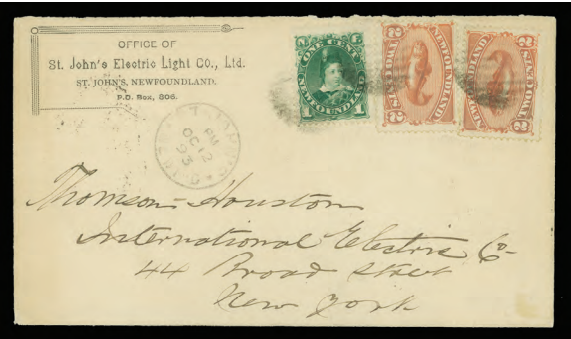 OFFICE OF
St. John's Electric Light Co., Ltd.
ST. JOHN'S, NEWFOUNDLAND.
P.O. Box, 306.
ONE CENT
NEWFOUNDLAND
1 1
NEWFOUNDLAND
2 2
NEWFOUNDLAND
2 2
PM
OC 12
93
Thomson-Houston
International Electric Co
44 Broad Street
New York